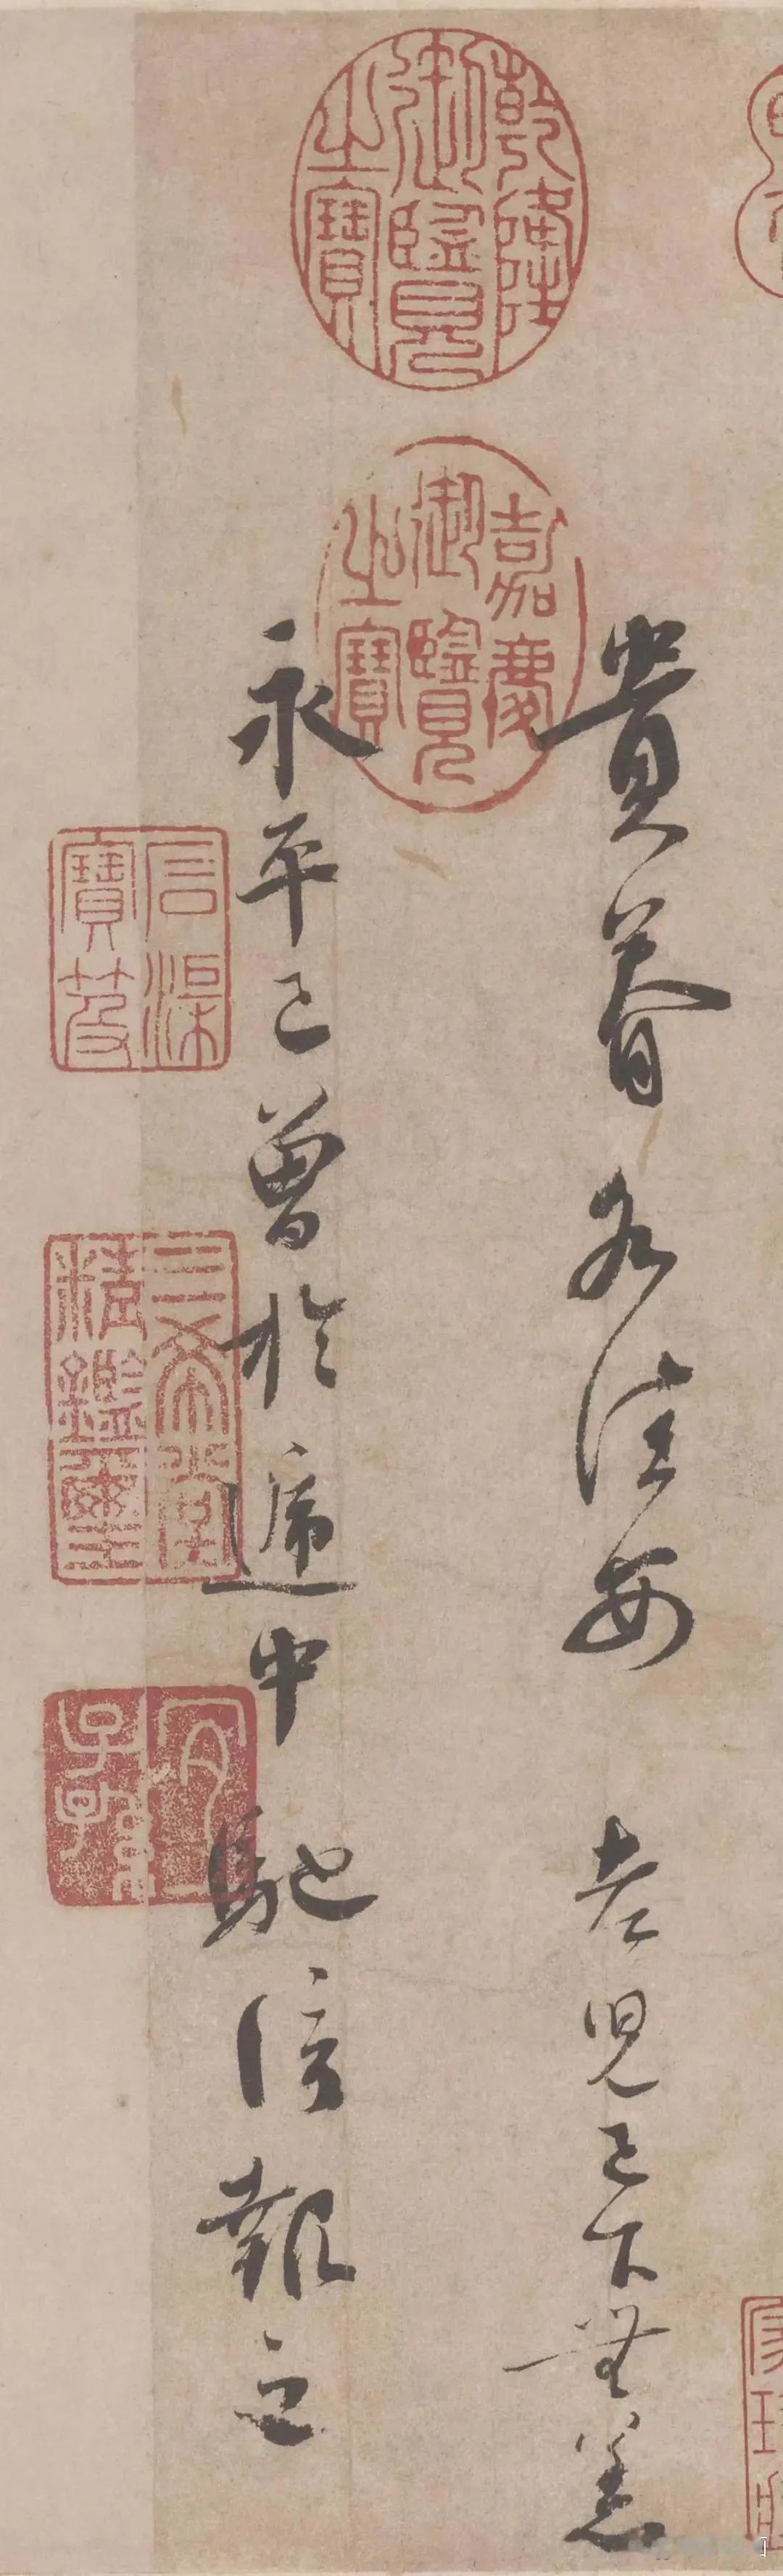 貴眷各佳安 老兒已下無恙
永平已曾於遞中馳信報之
乾隆御覽之寶
嘉慶御覽之寶
石渠寶笈
三希堂精鑑璽
宜子孫